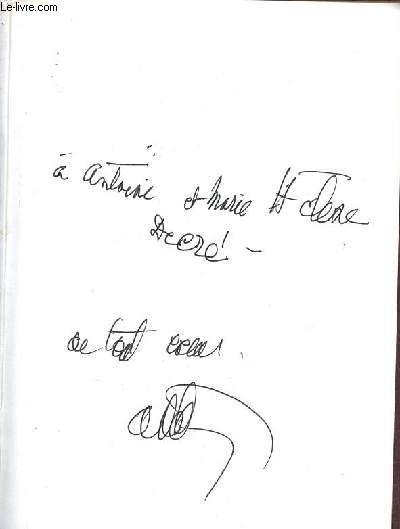 Le-livre.com
à Antoine et Marie Hélène
Decré –
de tout cœur.